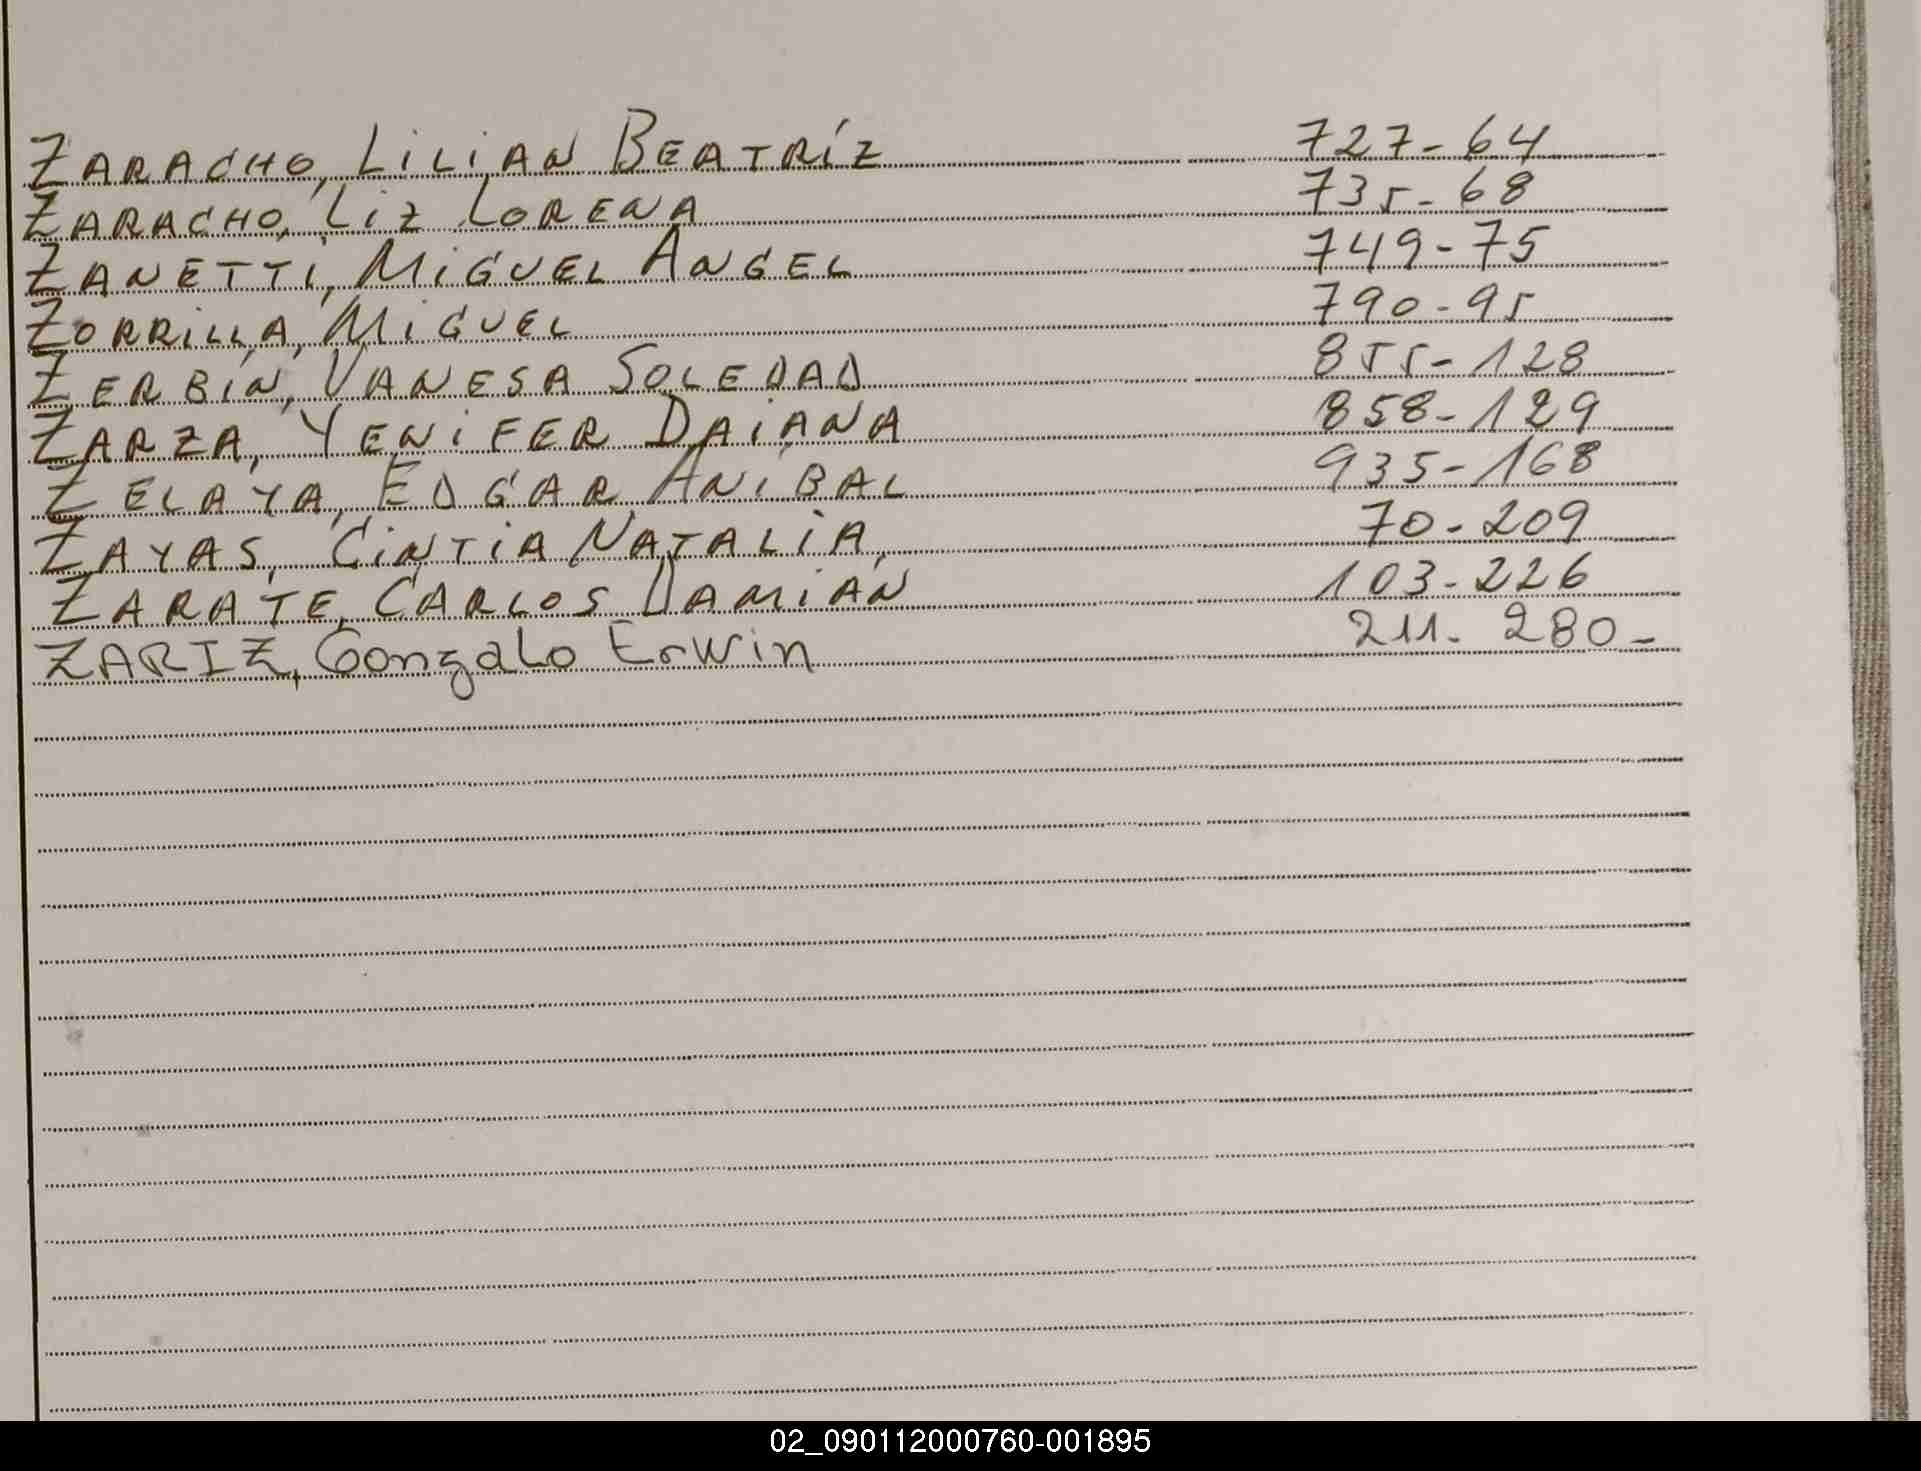 ZARACHO, LILIAN BEATRÍZ 727-64
ZARACHO, LIZ LORENA 735-68
ZANETTI, MIGUEL ANGEL 749-75
ZORRILLA, MIGUEL 790-95
ZERBIN, VANESA SOLEDAD 855-128
ZARZA, YENIFER DAIANA 858-129
ZELAYA, EDGAR ANIBAL 935-168
ZAYAS, CINTIA NATALIA 70-209
ZARATE, CARLOS DAMIAN 103-226
ZARIZ, Gonzalo Erwin 211-280-
02_090112000760-001895